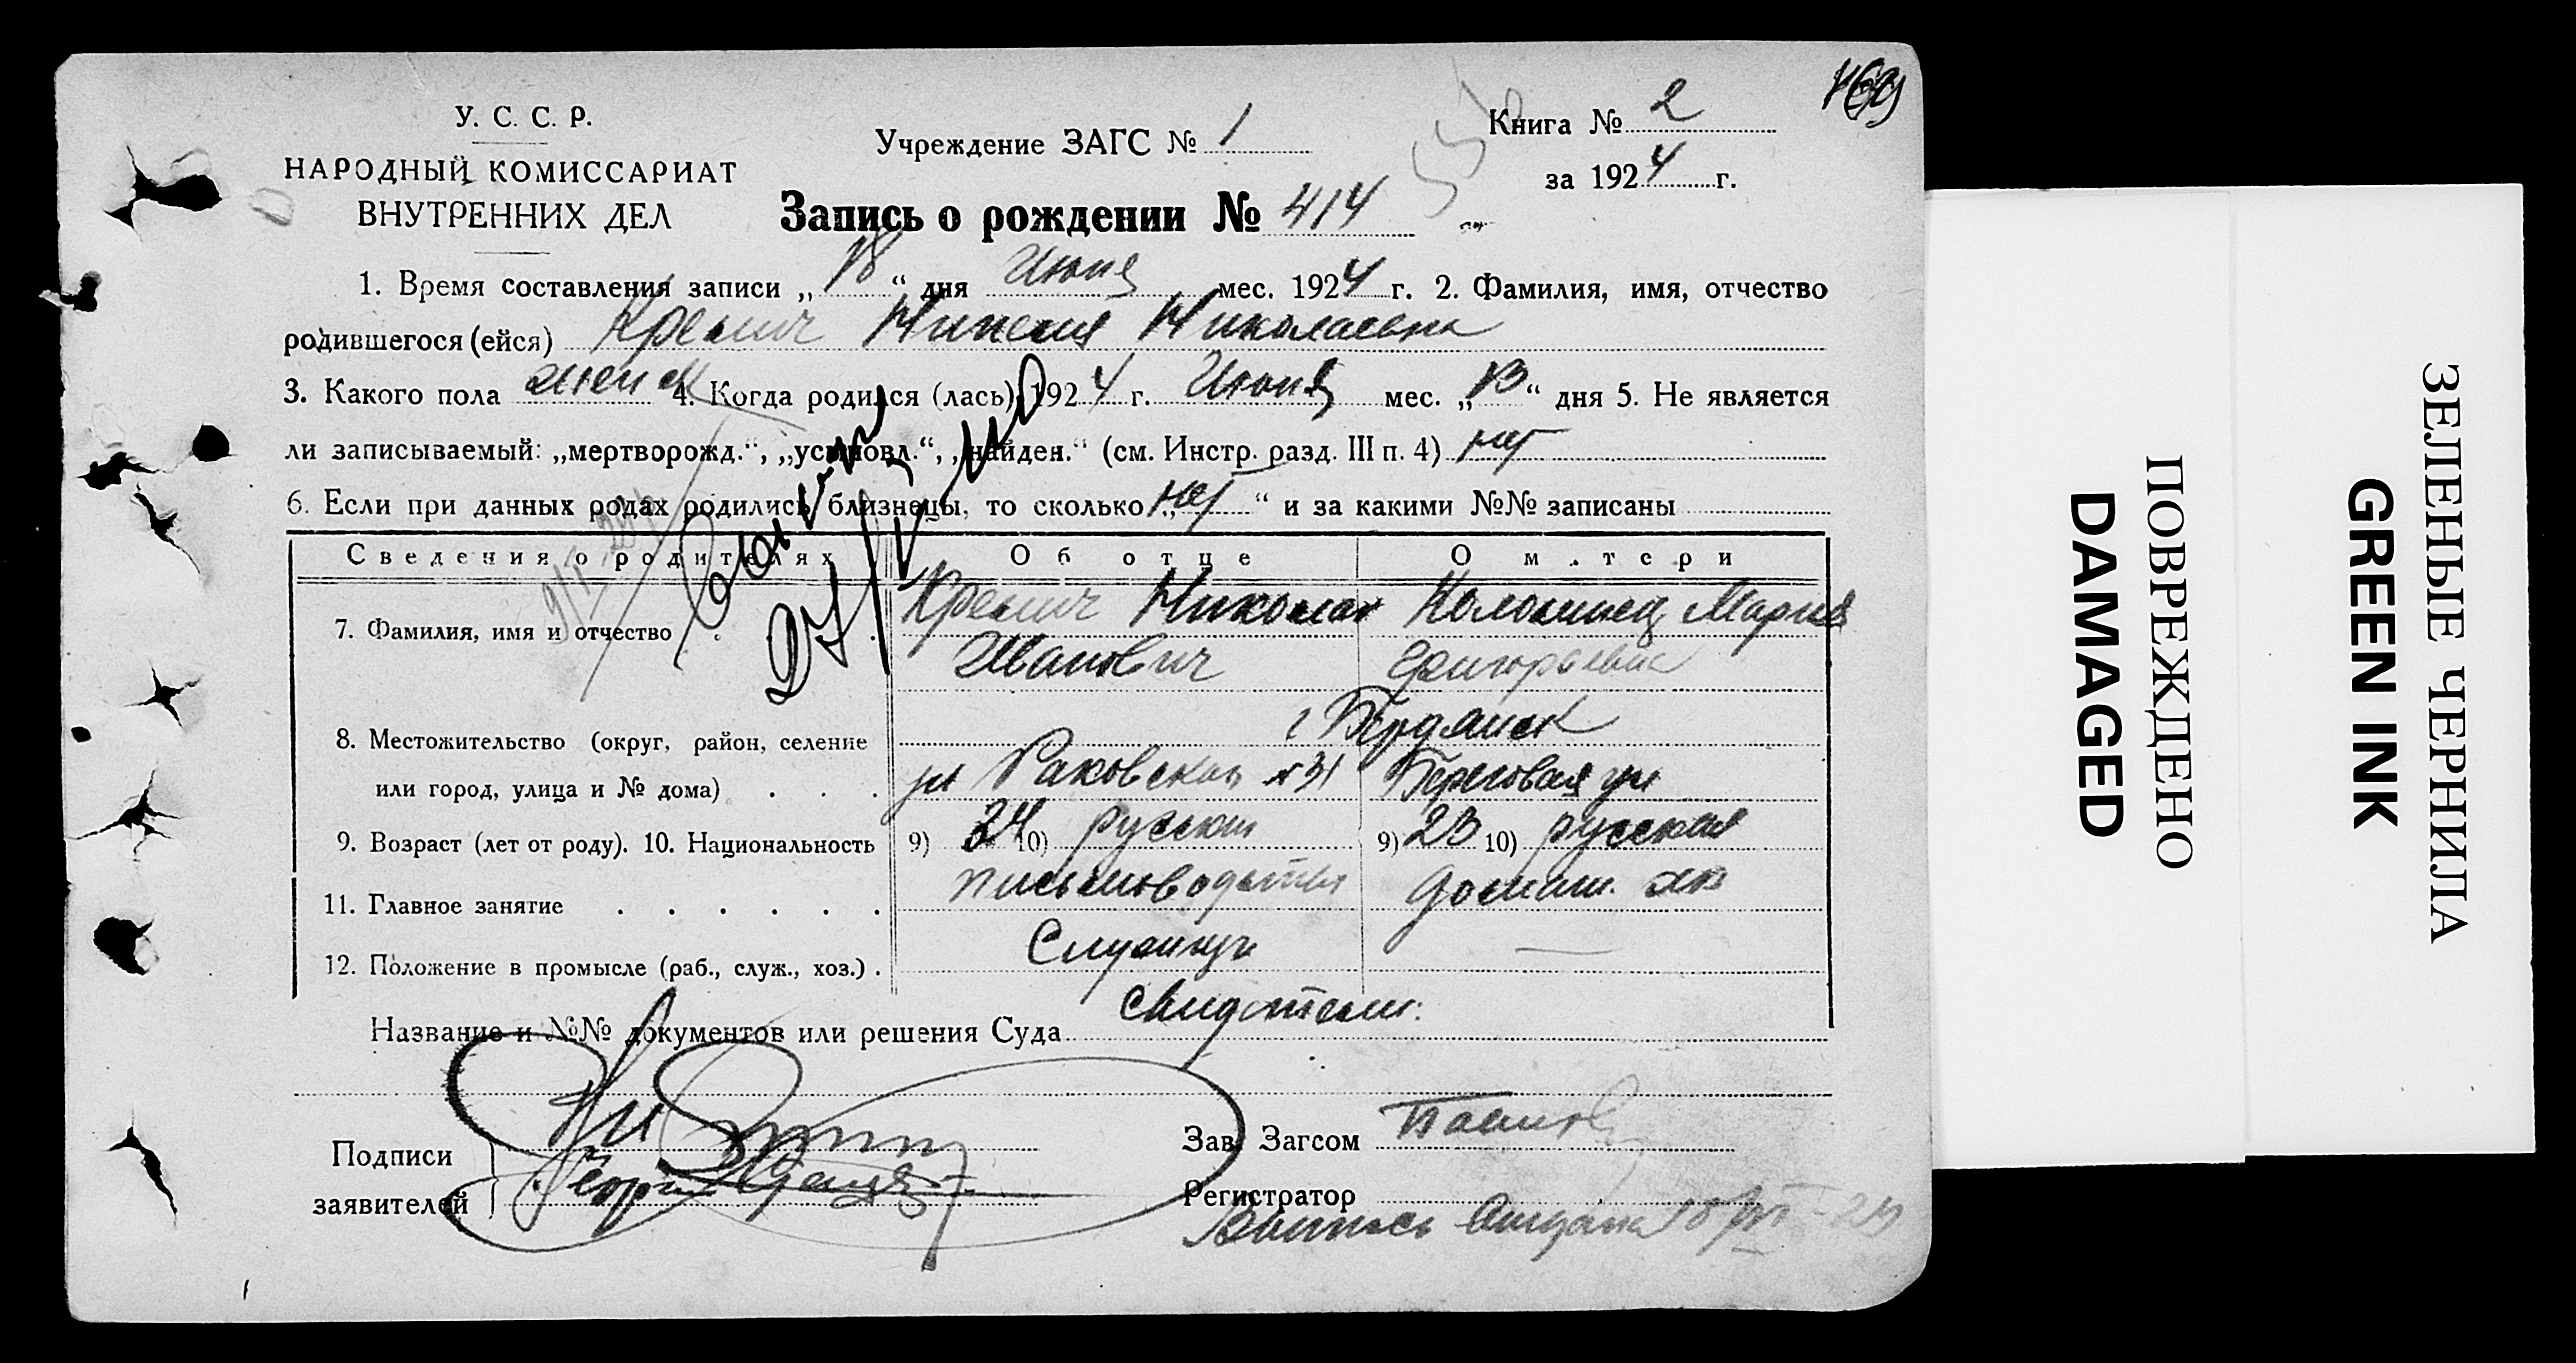 169
У. С. С. Р.
НАРОДНЫЙ КОМИССАРИАТ
ВНУТРЕННИХ ДЕЛ
Учреждение ЗАГС № 1
Книга № 2
за 1924 г.
Запись о рождении № 414
1. Время составления записи „18“ дня Июня мес. 1924 г. 2. Фамилия, имя, отчество
родившегося (ейся) Николаевна
3. Какого пола женск 4. Когда родился (лась) 1924 г. Июня мес. „13“ дня 5. Не является
ли записываемый: „мертворожд.“, „установл.“, „найден.“ (см. Инстр. разд. III п. 4) нет
6. Если при данных родах родились близнецы, то сколько „нет“ и за какими №№ записаны
Сведения о родителях Об отце О матери
7. Фамилия, имя и отчество Николай Коломиец Мария
Иванович Григорьевна
г Бердянск
8. Местожительство (округ, район, селение
или город, улица и № дома) ул Раковская №31 Береговая ул
9. Возраст (лет от роду). 10. Национальность 9) 24 10) русский 9) 23 10) русская
11. Главное занятие письмоводитель домашн. хоз
12. Положение в промысле (раб., служ., хоз.) Служащ —
Название и №№ документов или решения Суда свидетели:
Подписи
заявителей
Зав. Загсом
Регистратор
Выпись выдана 18/VI-24
ЗЕЛЕНЫЕ ЧЕРНИЛА
GREEN INK
ПОВРЕЖДЕНО
DAMAGED